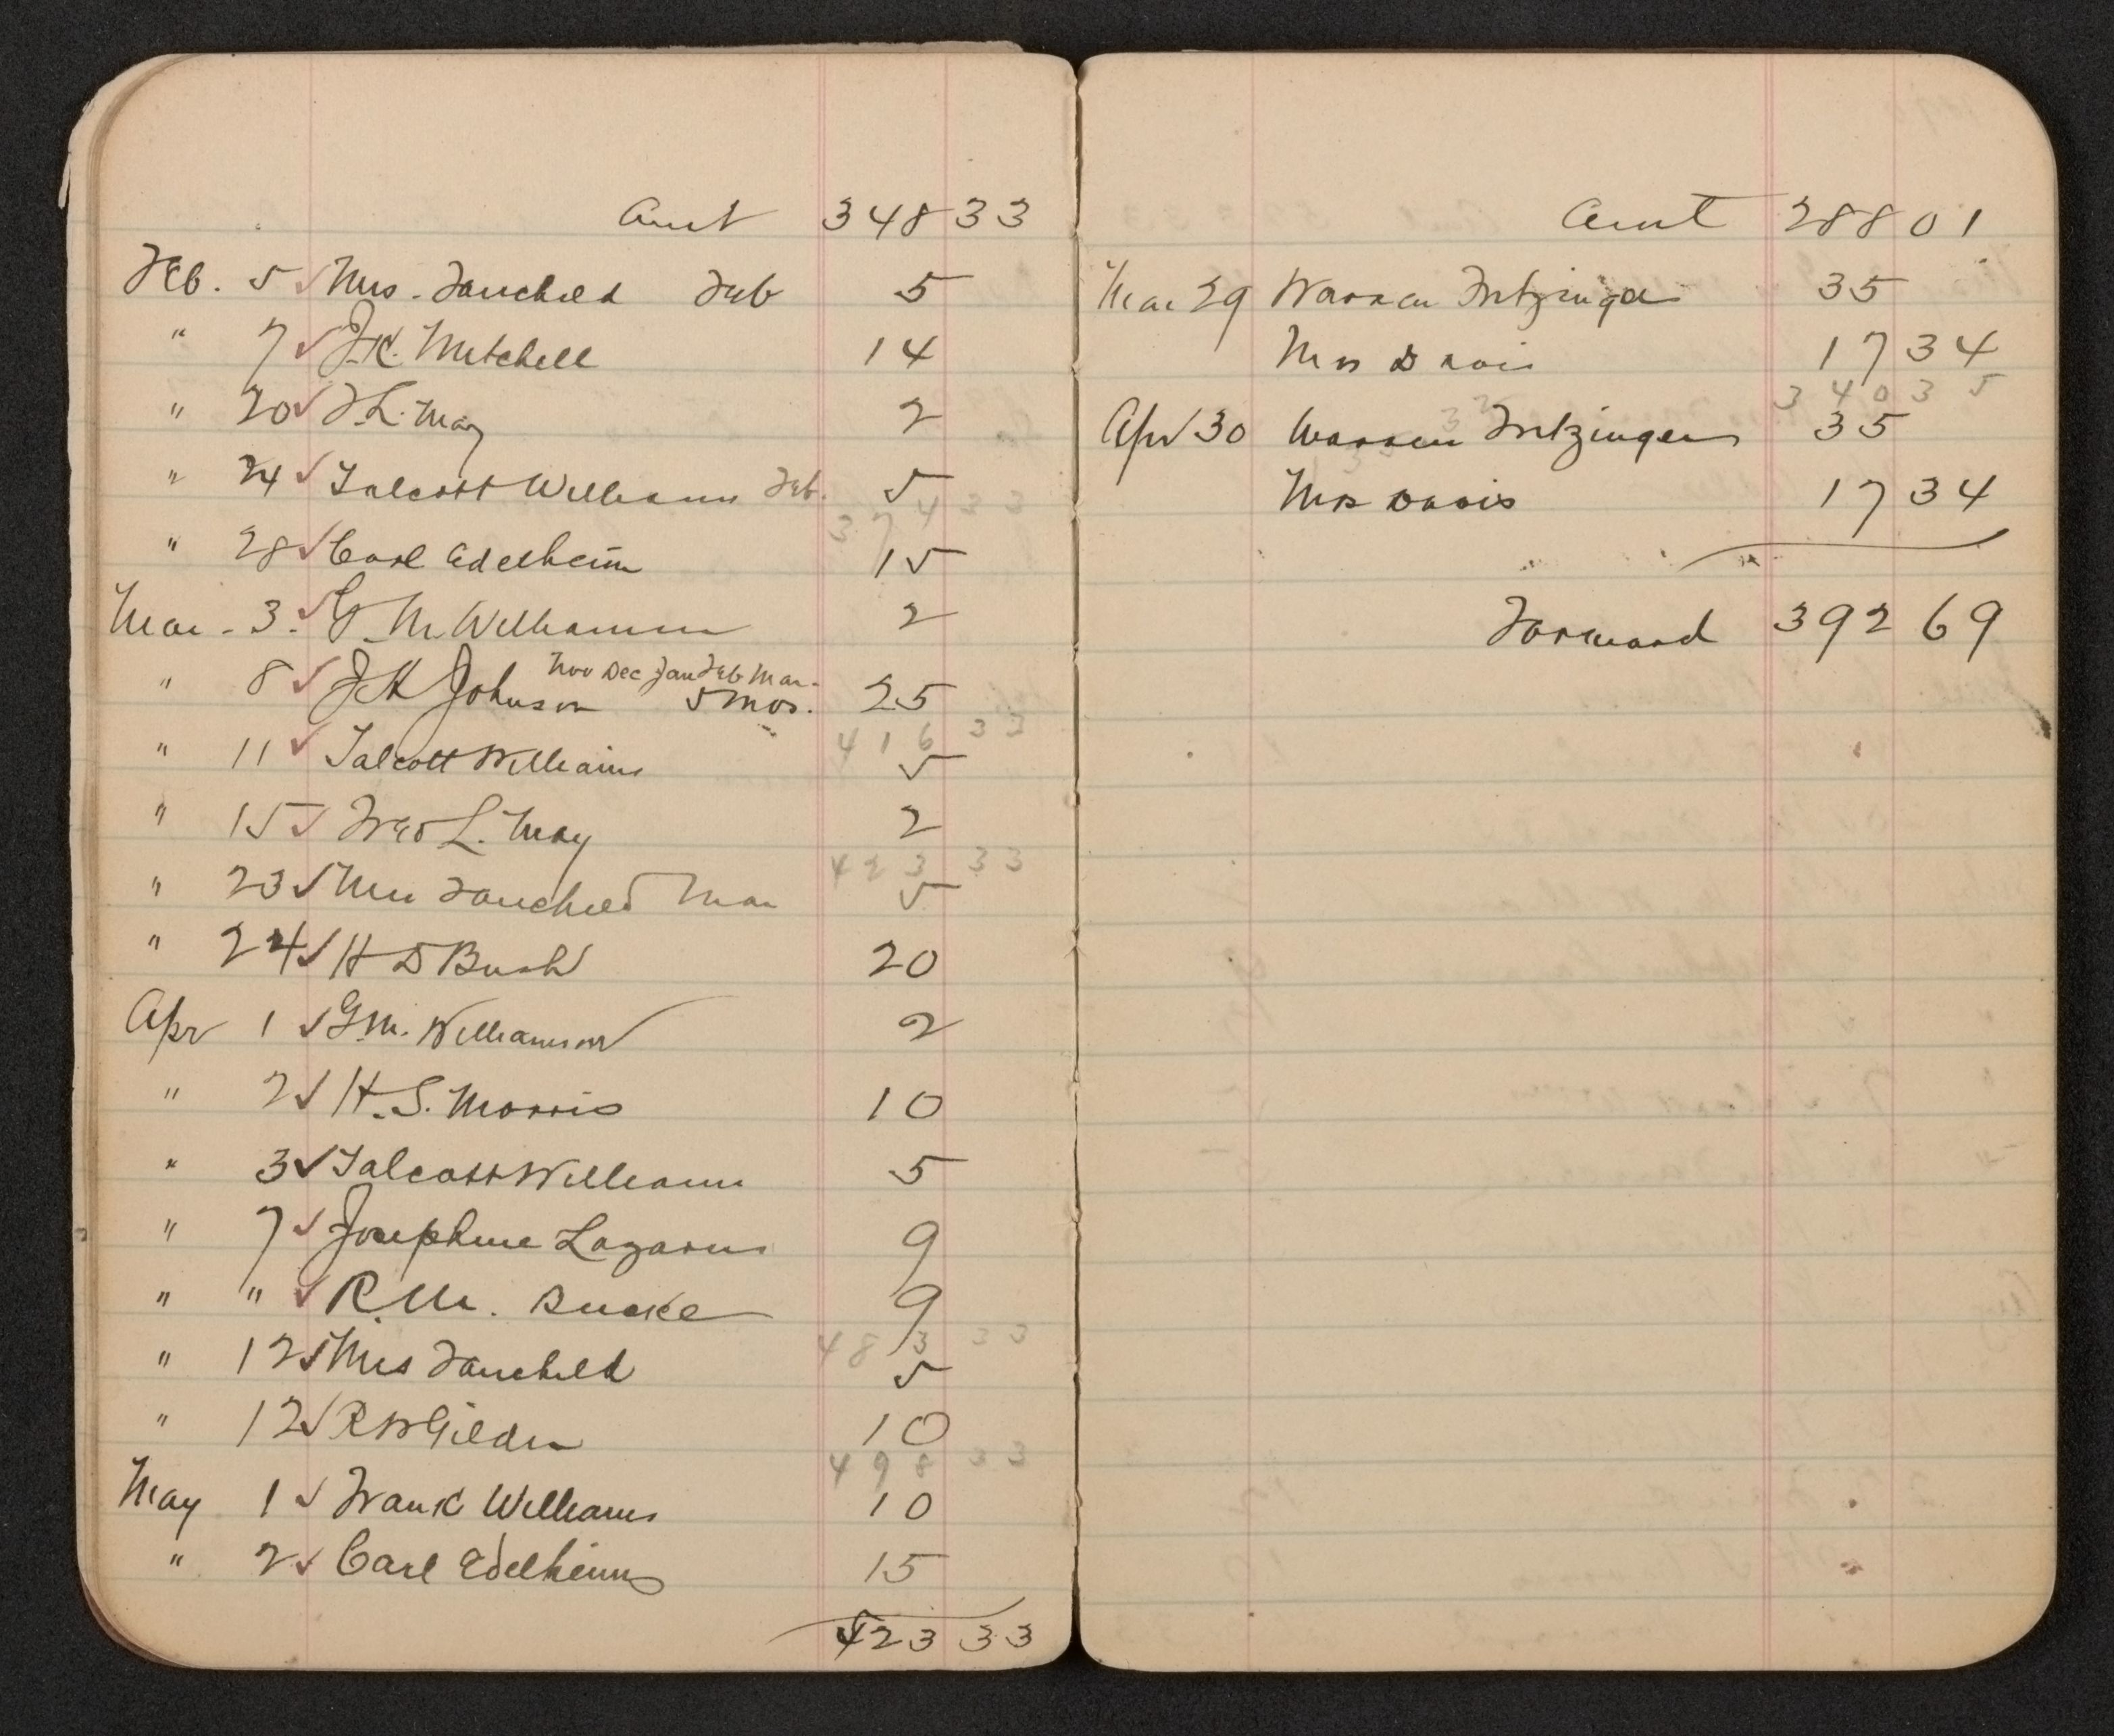 Amt 348 33
Feb. 5 ✓ Mrs. Fairchild Feb 5
" 7 ✓ J.K. Mitchell 14
" 20 ✓ F.L. May 2
" 24 ✓ Talcott Williams Feb. 5
374 33
" 28 ✓ Carl Edelheim 15
Mar. 3. ✓ G. M. Williamson 2
Nov Dec Jan Feb Mar.
" 8 ✓ J H Johnson 5 mos. 25
416 33
" 11 ✓ Talcott Williams 5
" 15 ✓ Fred L. May 2
423 33
" 23 ✓ Mrs Fairchild Mar 5
" 24 ✓ H D Bush 20
Apr 1 ✓ G.M. Williamson 2
" 2 ✓ H. S. Morris 10
" 3 ✓ Talcott Williams 5
" 7 ✓ Josephine Lazarus 9
" " ✓ R.M. Bucke 9
483 33
" 12 ✓ Mrs Fairchild 5
" 12 ✓ R W Gilder 10
498 33
May 1 ✓ Frank Williams 10
" 2 ✓ Carl Edelheim 15
523 33
Amt 288 01
Mar 29 Warren Fritzinger 35
Mrs Davis 17 34
340 35
Apr 30 Warren Fritzinger 35
Mrs Davis 17 34
Forward 392 69